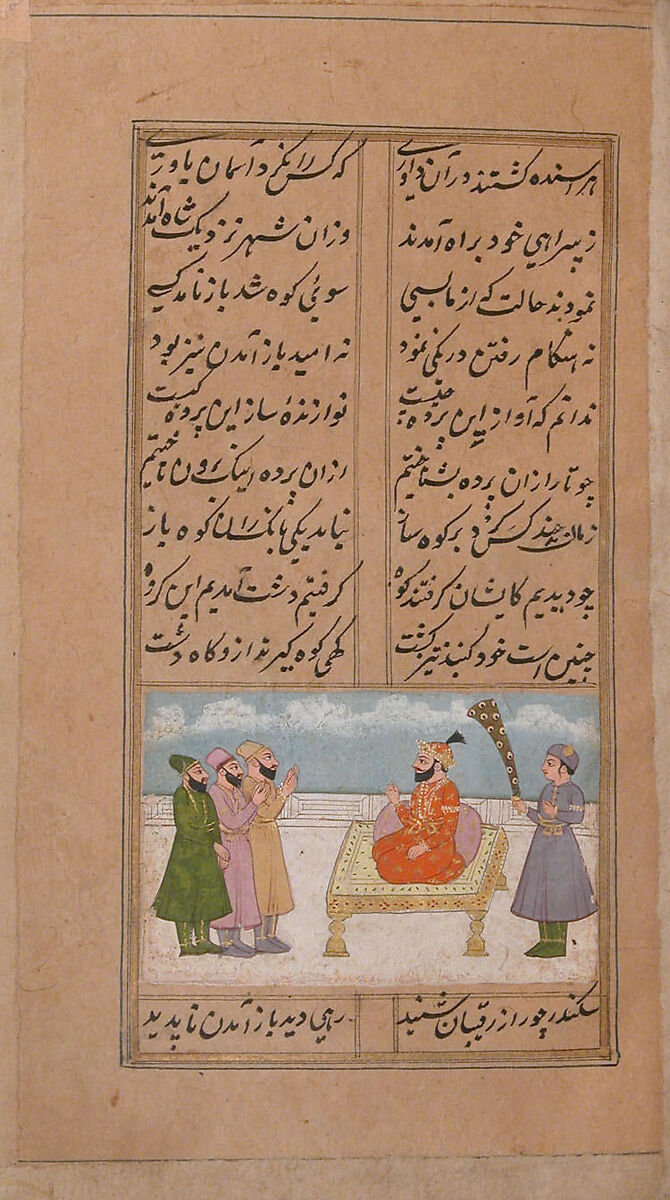 هراسنده گشتند در آن داوری که کس را نکرد آسمان یاوری
ز بیراهی خود براه آمدند وزان شهر نزدیک شاه آمدند
نمودند حالت که از ما بسی سوئی کوه شد باز نامد کسی
نه هنگام رفتن درنگی نمود نه امید باز آمدن نیز بود
ندانم که آواز این پرده چیست نوازندهٔ ساز این پرده کیست
چو تا راز ان پرده بشناختیم ازان پرده اینک برون تاختیم
چند کس کرد بر کوه ساز نیامد یکی بانگ زان کوه باز
چو دیدیم کایشان گرفتند کوه گرفتیم دشت آمدیم این گروه
چنین است خود گنبد تیز گشت گهی کوه گیرند ازو گاه دشت
سکندر چو راز رقیبان شنید رهی دید باز آمدن ناپدید